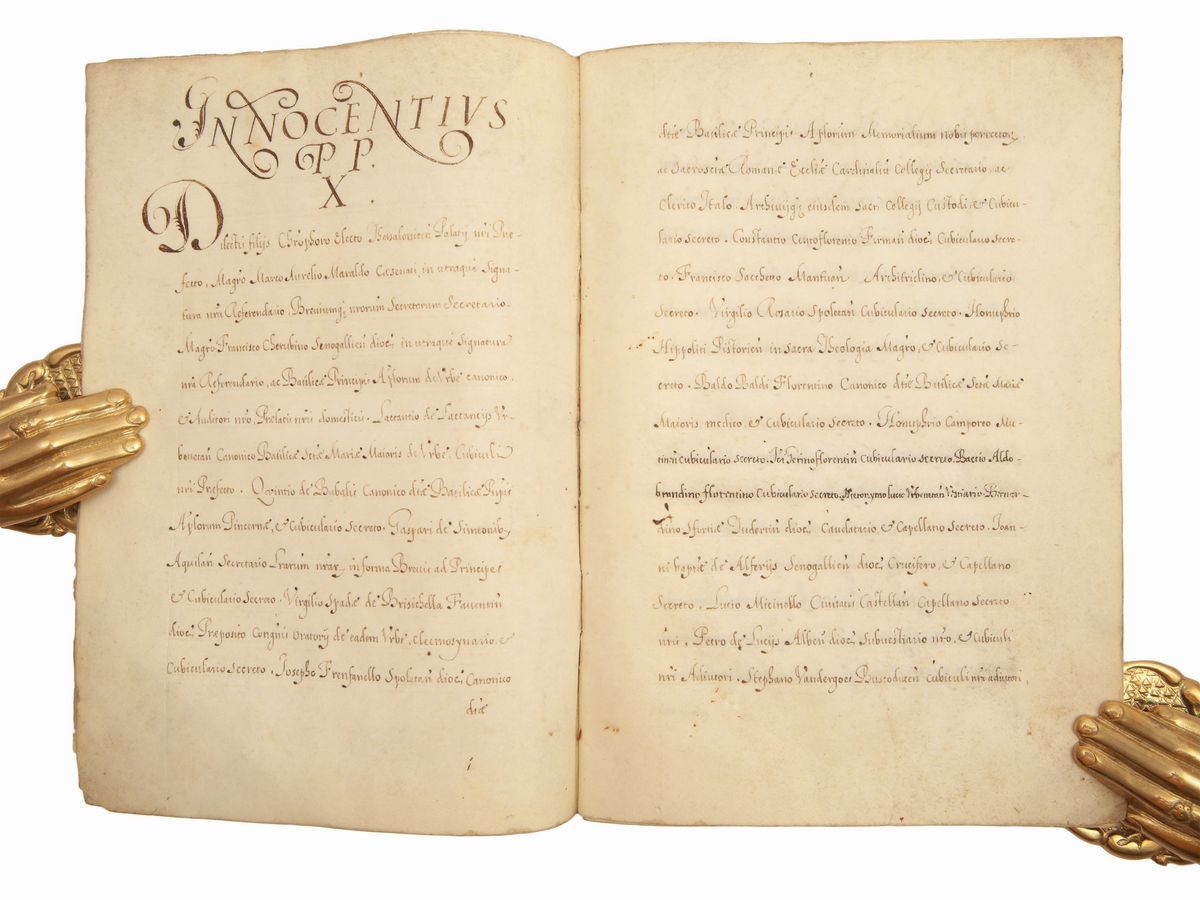 INNOCENTIVS
PP.
X.
Dilecti filijs Chrophoro Electo Thesaloniceñ Palatij nri Pre-
fecto, Magro Marco Aurelio Maraldo Cæsenati, in utraque Signa-
tura nrũ Referendario, Breviumq; nrorum Secretorum Secretario.
Magro Francisco Cherubino Senogallieñ dioc, in utraque Signatura
nrã Referendario, ac Basilicæ Principis Aplorum de Vrbe canonico,
& Auditori nrõ, Prælatis nris domesticis. Lactantio de Lactantijs Vr-
bevetan Canonico Basilicæ Sctæ Mariæ Maioris de Vrbe, Cubiculi
nri Prefecto. Quintio de Bubalis Canonico dictæ Basilicæ Prinpis
Aplorum Pincernæ, & Cubiculario Secreto. Gaspari de Simeonib,
Aquilañ Secretario Lrarum nrar, in forma Brevis ad Principes
& Cubiculario Secreto. Virgilio Spadæ de Brisichella Faventiñ
dioc, Preposito Congnis Oratorij de eadem Vrbe, eleemosynario, &
Cubiculario Secreto. Josepho Frenfanello Spoletañ dioc, Canonico
dictæ
i
dictæ Basilicæ Principis Aplorum Memorialium nobis porrector,
ac Sacrosctæ Romanæ Eccliæ Cardinaliũ Collegij Secretario, ac
Clerico Italo. Archivijq; eiusdem Sacri Collegij Custodi, & Cubicu-
lario secreto. Constantio Centoflorenio Firmañ dioc, Cubiculario Secre-
to. Francisco Sacchetto Mantuañ Architriclino, & Cubiculario
Secreto. Virgilio Rosario Spoletañ Cubiculario secreto. Honuphrio
Hippoliti Pistorieñ in Sacra Theologia Magro, & Cubiculario Se-
creto. Baldo Baldi Florentino Canonico dictæ Basilicæ Sctæ Mariæ
Maioris medico, & Cubiculario secreto. Honuphrio Camporeo Mu-
tineñ Cubiculario Secreto. florentiñ Cubiculario secreto. Baccio Aldo-
brandino florentino Cubiculario Secreto, Hieronymo Vestiario.
Sfortiæ Tudertiñ dioc, Caudatario, & Capellano Secreto. Joan-
ni bapttæ de Alferijs Senogallieñ dioc, Crucifero, & Capellano
Secreto. Lucio Micinello Civitatis Castellañ Capellano Secreto
nrũ. Petro de Lucijs Albeñ dioc, Subvestiario nro, & Cubiculi
nri Adiutori. Stephano Vandergoes Buscoduceñ Cubiculi nri adiutori.